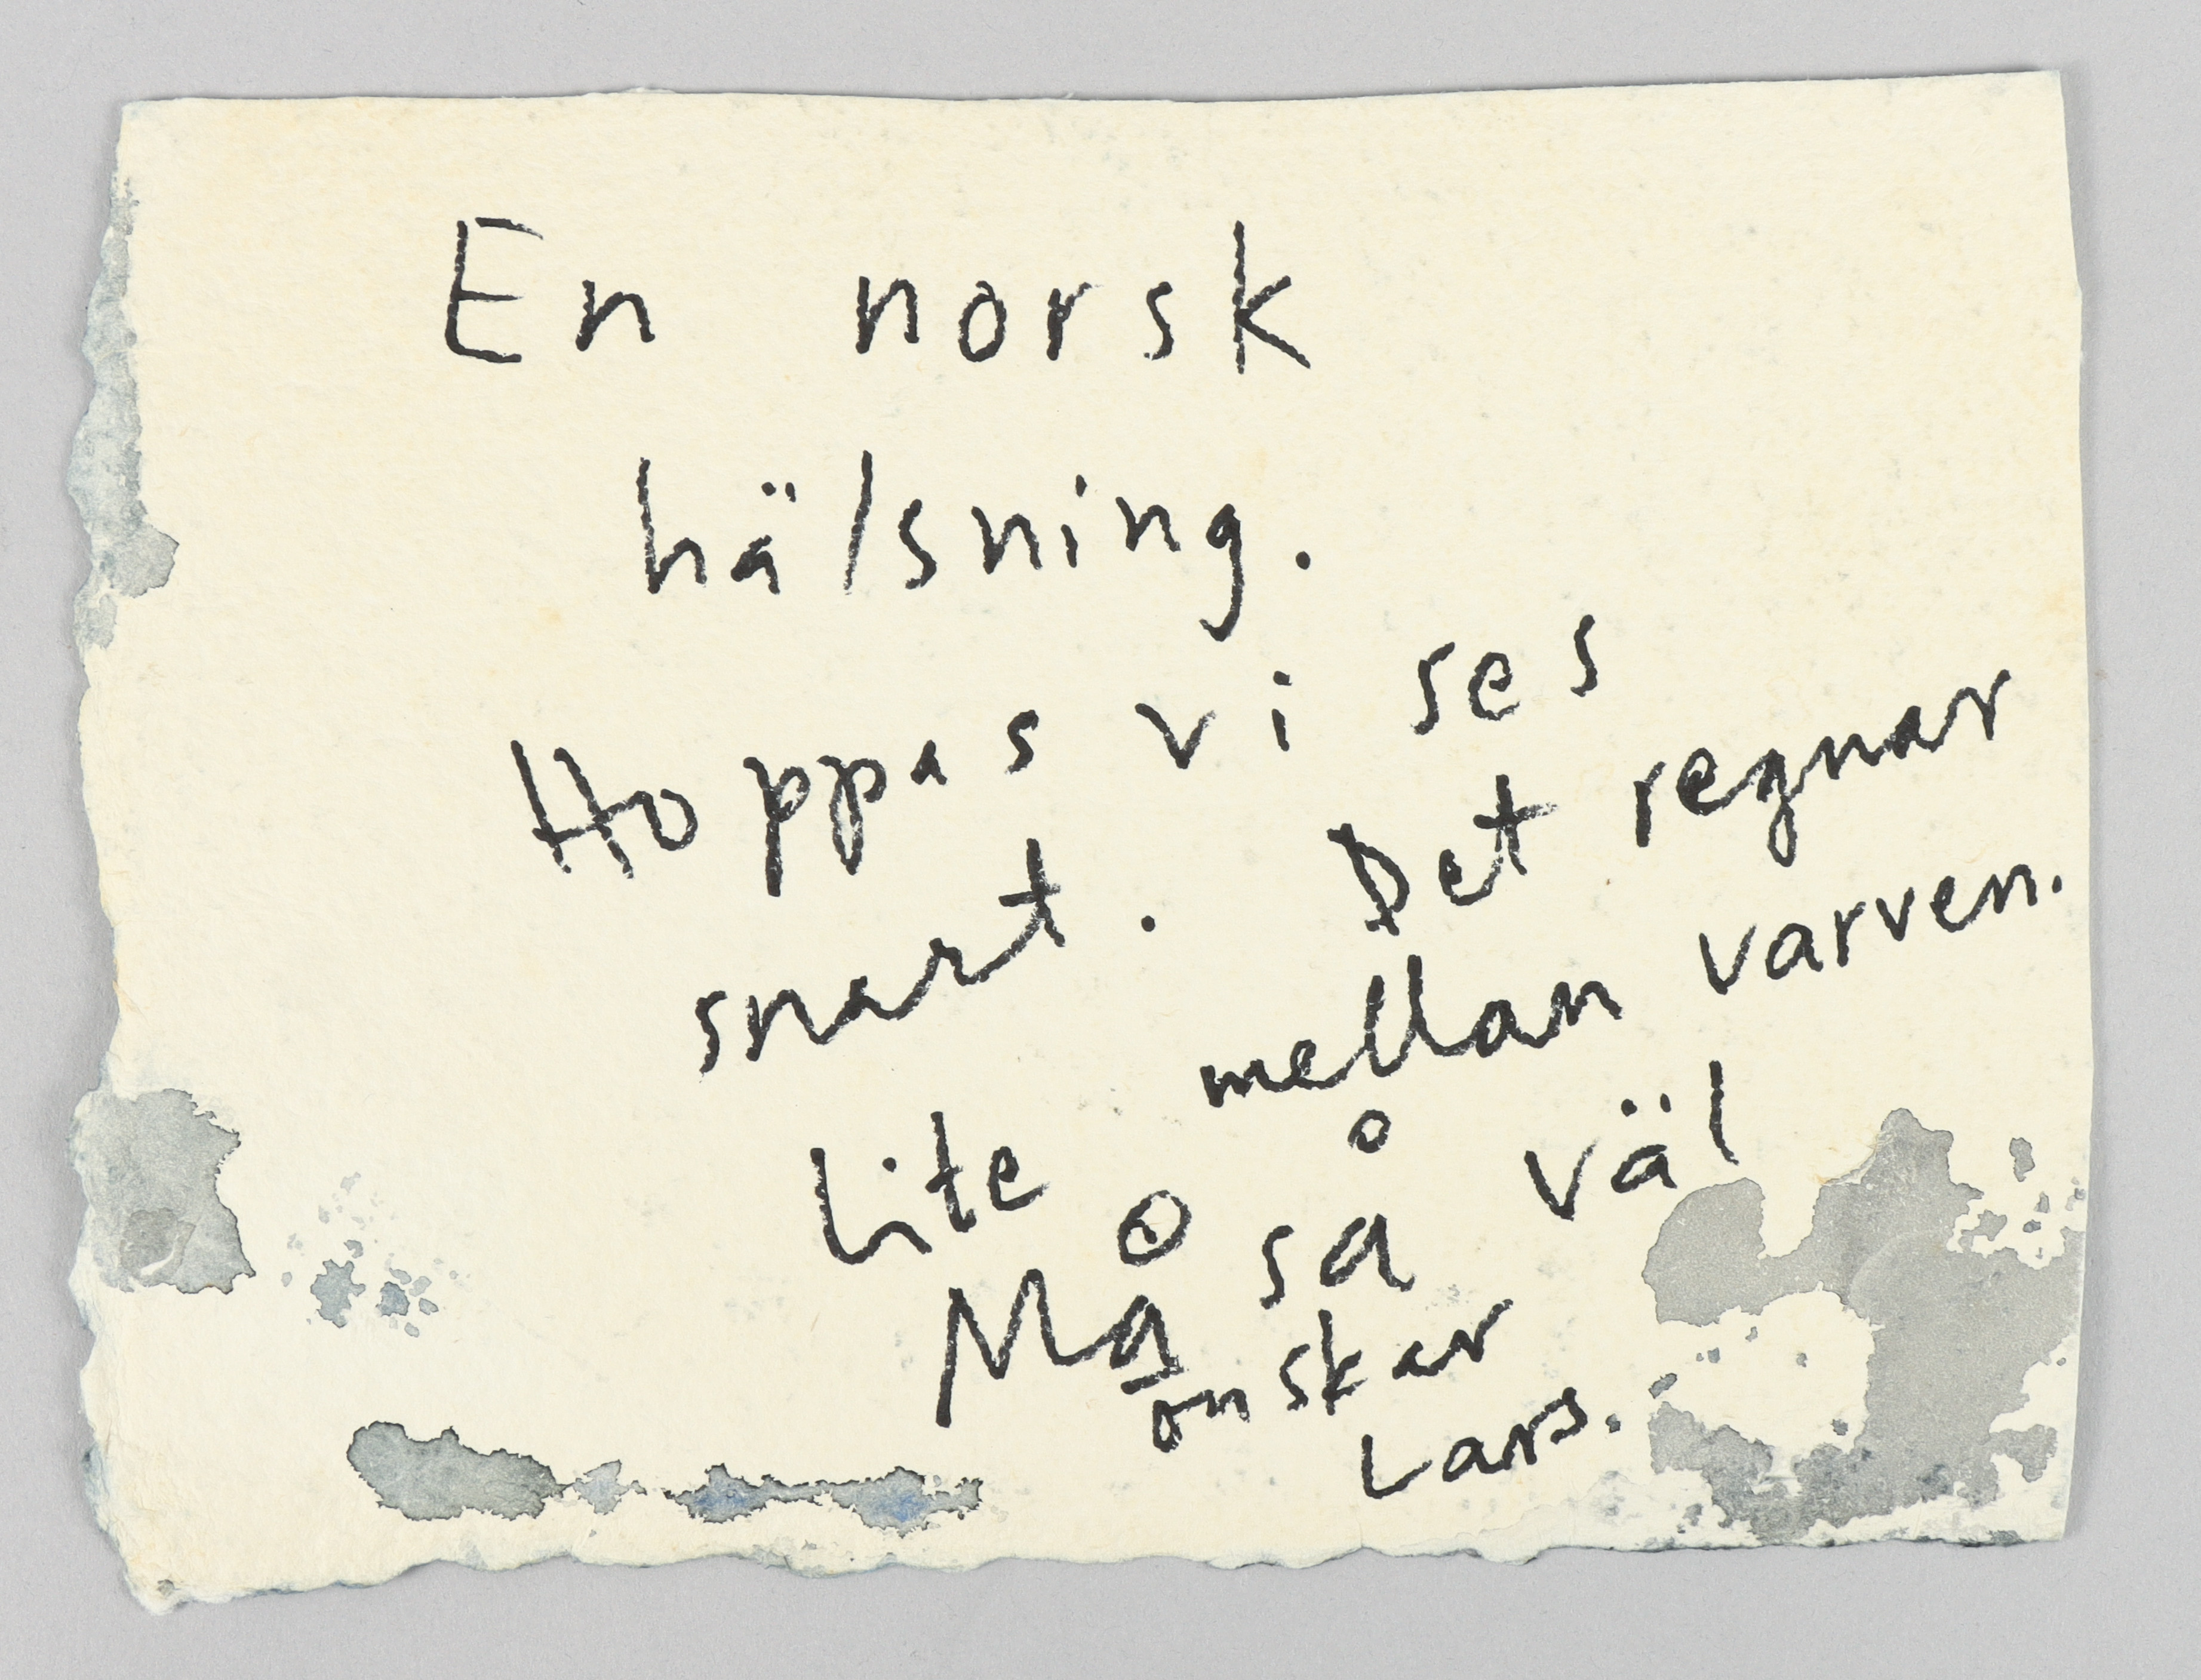 En norsk
hälsning.
Hoppas vi ses
snart. Det regnar
lite mellan varven.
Må så väl
önskar
Lars.